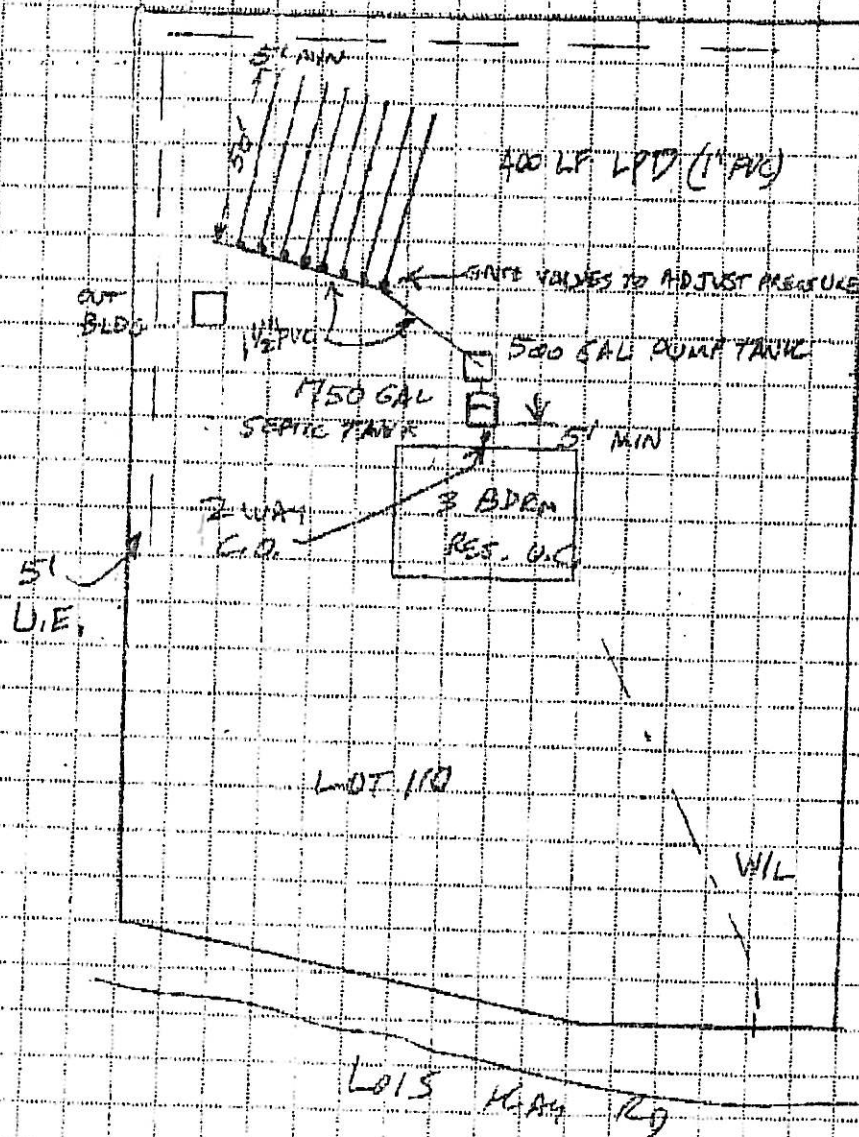 5' MIN
50'
400 LF LPD (1" PVC)
GATE VALVES TO ADJUST PRESSURE
OUT
BLDG
1 1/2" PVC
500 GAL PUMP TANK
750 GAL
SEPTIC TANK
5' MIN
2-WAY
C.O.
3 BDRM
RES. U.C.
5'
U.E.
LOT
W/L
LOIS
RD